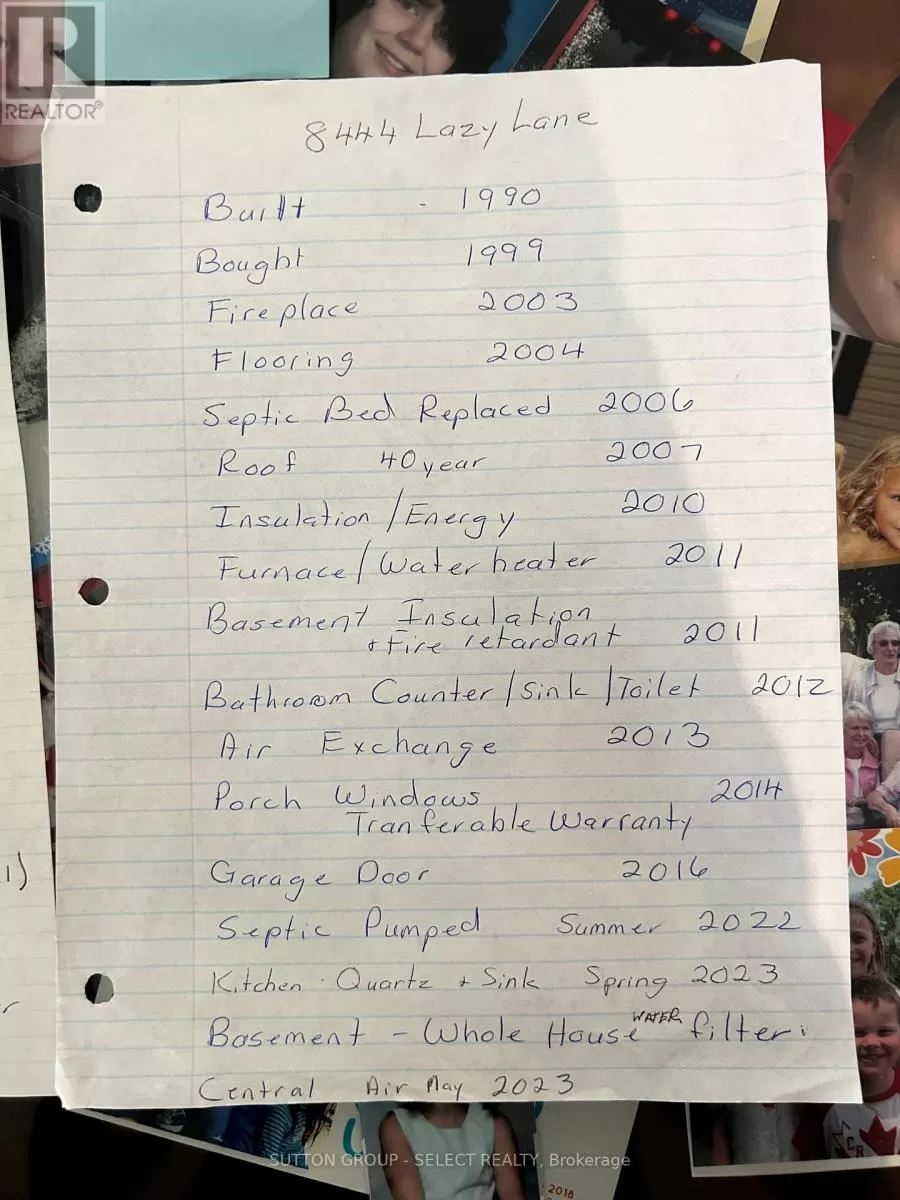 R
REALTOR®
8444 Lazy Lane
Built - 1990
Bought 1999
Fireplace 2003
Flooring 2004
Septic Bed Replaced 2006
Roof 40 year 2007
Insulation / Energy 2010
Furnace / Water heater 2011
Basement Insulation
+ Fire retardant 2011
Bathroom Counter / Sink / Toilet 2012
Air Exchange 2013
Porch Windows 2014
Tranferable Warranty
1)
Garage Door 2016
Septic Pumped Summer 2022
Kitchen · Quartz + Sink Spring 2023
Basement - Whole House WATER filter
Central Air May 2023
SUTTON GROUP - SELECT REALTY, Brokerage
2016